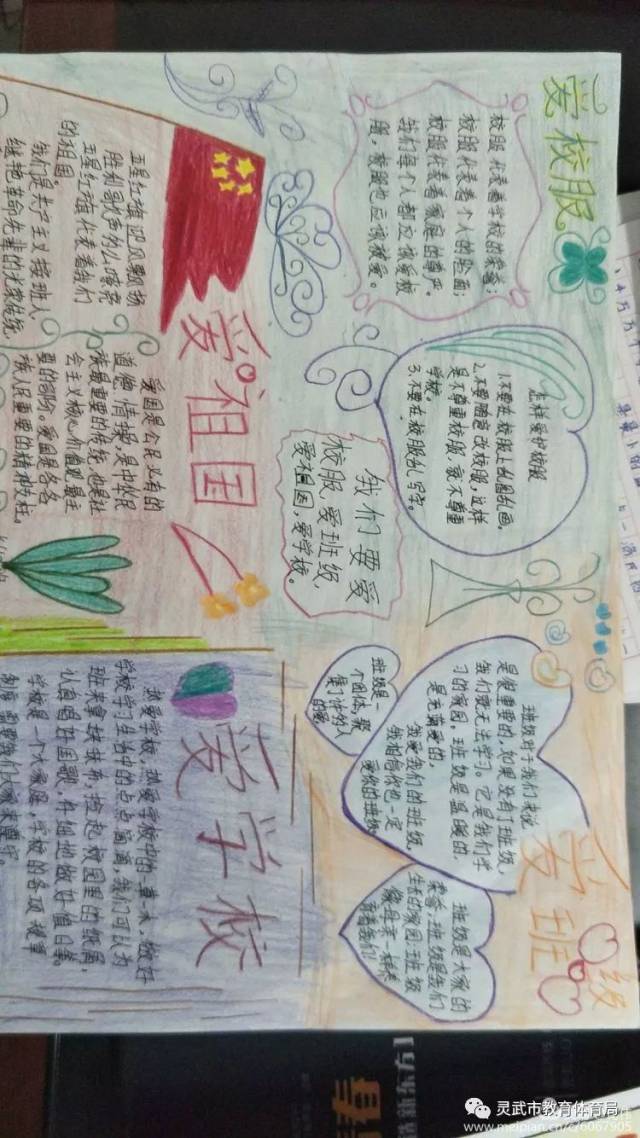 爱校服
校服代表着学校的荣誉；
校服代表着个人的脸面；
校服代表着家庭的尊严。
我们每个人都应该爱校
服，校服也应该被爱。
怎样爱护校服
1.不要在校服上乱图乱画。
2.不要随意改校服，这样
是不尊重校服，就不尊重
学校。
3.不要在校服乱写字。
我们要爱
校服，爱班级，
爱祖国，爱学校。
五星红旗迎风飘扬
胜利歌声多么嘹亮
五星红旗代表着我们
的祖国。
我们是共产主义接班人，
继艳革命先辈的光荣传统，
爱祖国
爱国是公民必有的
道德情操，是中华民
族最重要的传统，也是社
会主义核心价值观最主
要的部份。爱国是各
族人民重要的精神支柱。
爱班级
班级对于我们来说
是很重要的，如果没有了班级，
我们就无法学习。它是我们学
习的家园，班级是温暖的，
是充满爱的。
我爱我们的班级，
我相信你也一定
爱你的班级
班级是一
个团体，聚
集了许多人
的爱
班级是大家的
荣誉；班级是我们
生长的家园；班级
像母亲一样养
育着我们！
爱学校
热爱学校，热爱学校中的一草一木，做好
学校学习生活中的点点滴滴，我们可以为
班来拿抹抹布，捡起校园里的纸屑，
认真唱好国歌，仔细地做好值日等。
学校是一个大家庭，学校的各项规章
制度，需要我们大家来遵守
灵武市教育体育局
www.meipian.cn/c/6067905